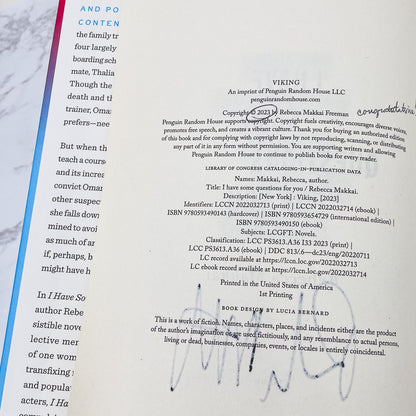 AND PO
CONTEN
the family tr
four largely
boarding sch
mate, Thalia
Though the
death and th
trainer, Oma
prefers—nee
But when th
teach a cours
and its increa
convict Omar
other suspec
she falls down
mined to avoi
as much of ar
if, perhaps, b
might have h
In I Have So
author Rebe
sistible nove
lective mem
of one wom
transfixing 
and popula
acters, I Ha
VIKING
An imprint of Penguin Random House LLC
penguinrandomhouse.com
Copyright © 2023 by Rebecca Makkai Freeman
Penguin Random House supports copyright. Copyright fuels creativity, encourages diverse voices,
promotes free speech, and creates a vibrant culture. Thank you for buying an authorized edition
of this book and for complying with copyright laws by not reproducing, scanning, or distributing
any part of it in any form without permission. You are supporting writers and allowing
Penguin Random House to continue to publish books for every reader.
LIBRARY OF CONGRESS CATALOGING-IN-PUBLICATION DATA
Names: Makkai, Rebecca, author.
Title: I have some questions for you / Rebecca Makkai.
Description: [New York] : Viking, [2023]
Identifiers: LCCN 2022032713 (print) | LCCN 2022032714 (ebook) |
ISBN 9780593490143 (hardcover) | ISBN 9780593654729 (international edition) |
ISBN 9780593490150 (ebook)
Subjects: LCGFT: Novels.
Classification: LCC PS3613.A36 I33 2023 (print) |
LCC PS3613.A36 (ebook) | DDC 813/.6—dc23/eng/20220711
LC record available at https://lccn.loc.gov/2022032713
LC ebook record available at https://lccn.loc.gov/2022032714
Printed in the United States of America
1st Printing
BOOK DESIGN BY LUCIA BERNARD
This is a work of fiction. Names, characters, places, and incidents either are the product
of the author's imagination or are used fictitiously, and any resemblance to actual persons,
living or dead, businesses, companies, events, or locales is entirely coincidental.